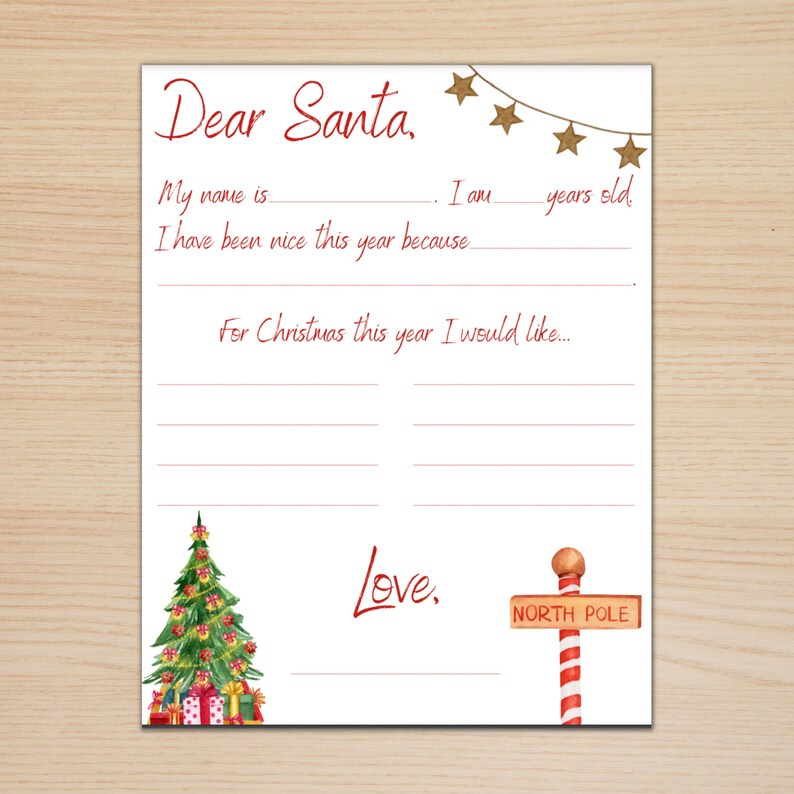 Dear Santa,
My name is . I am years old.
I have been nice this year because
.
For Christmas this year I would like...
Love,
NORTH POLE